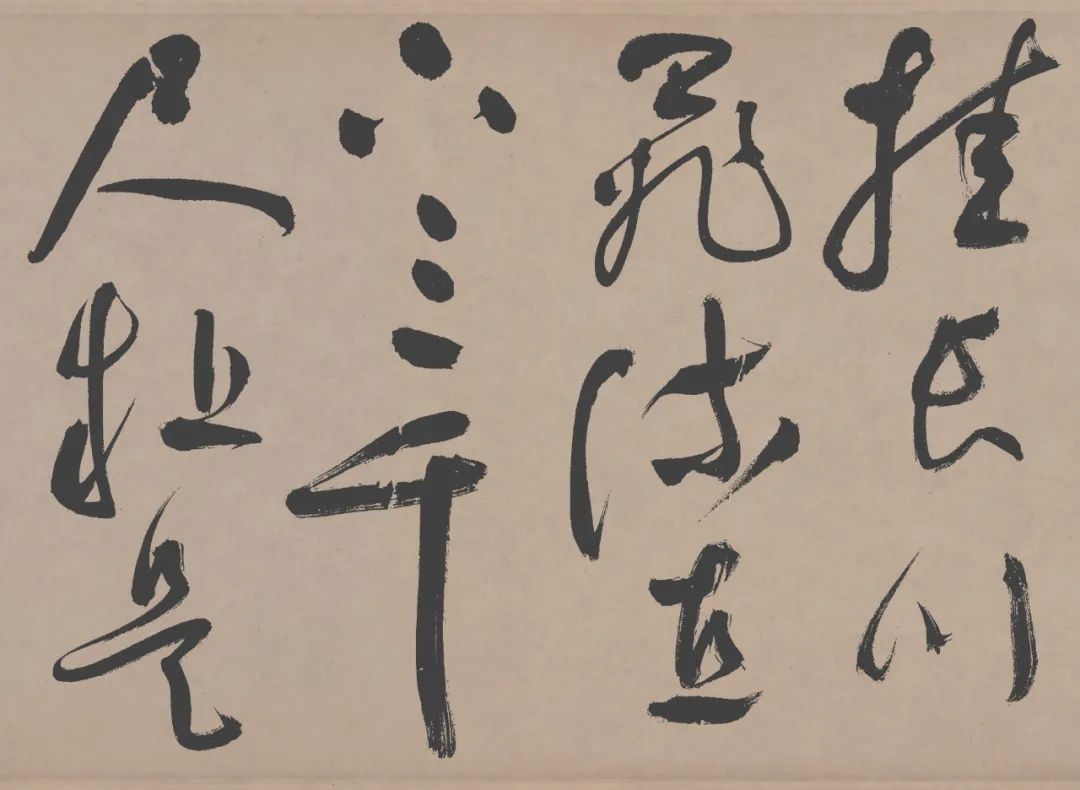 挂長川
飛流直
下三千
尺疑是